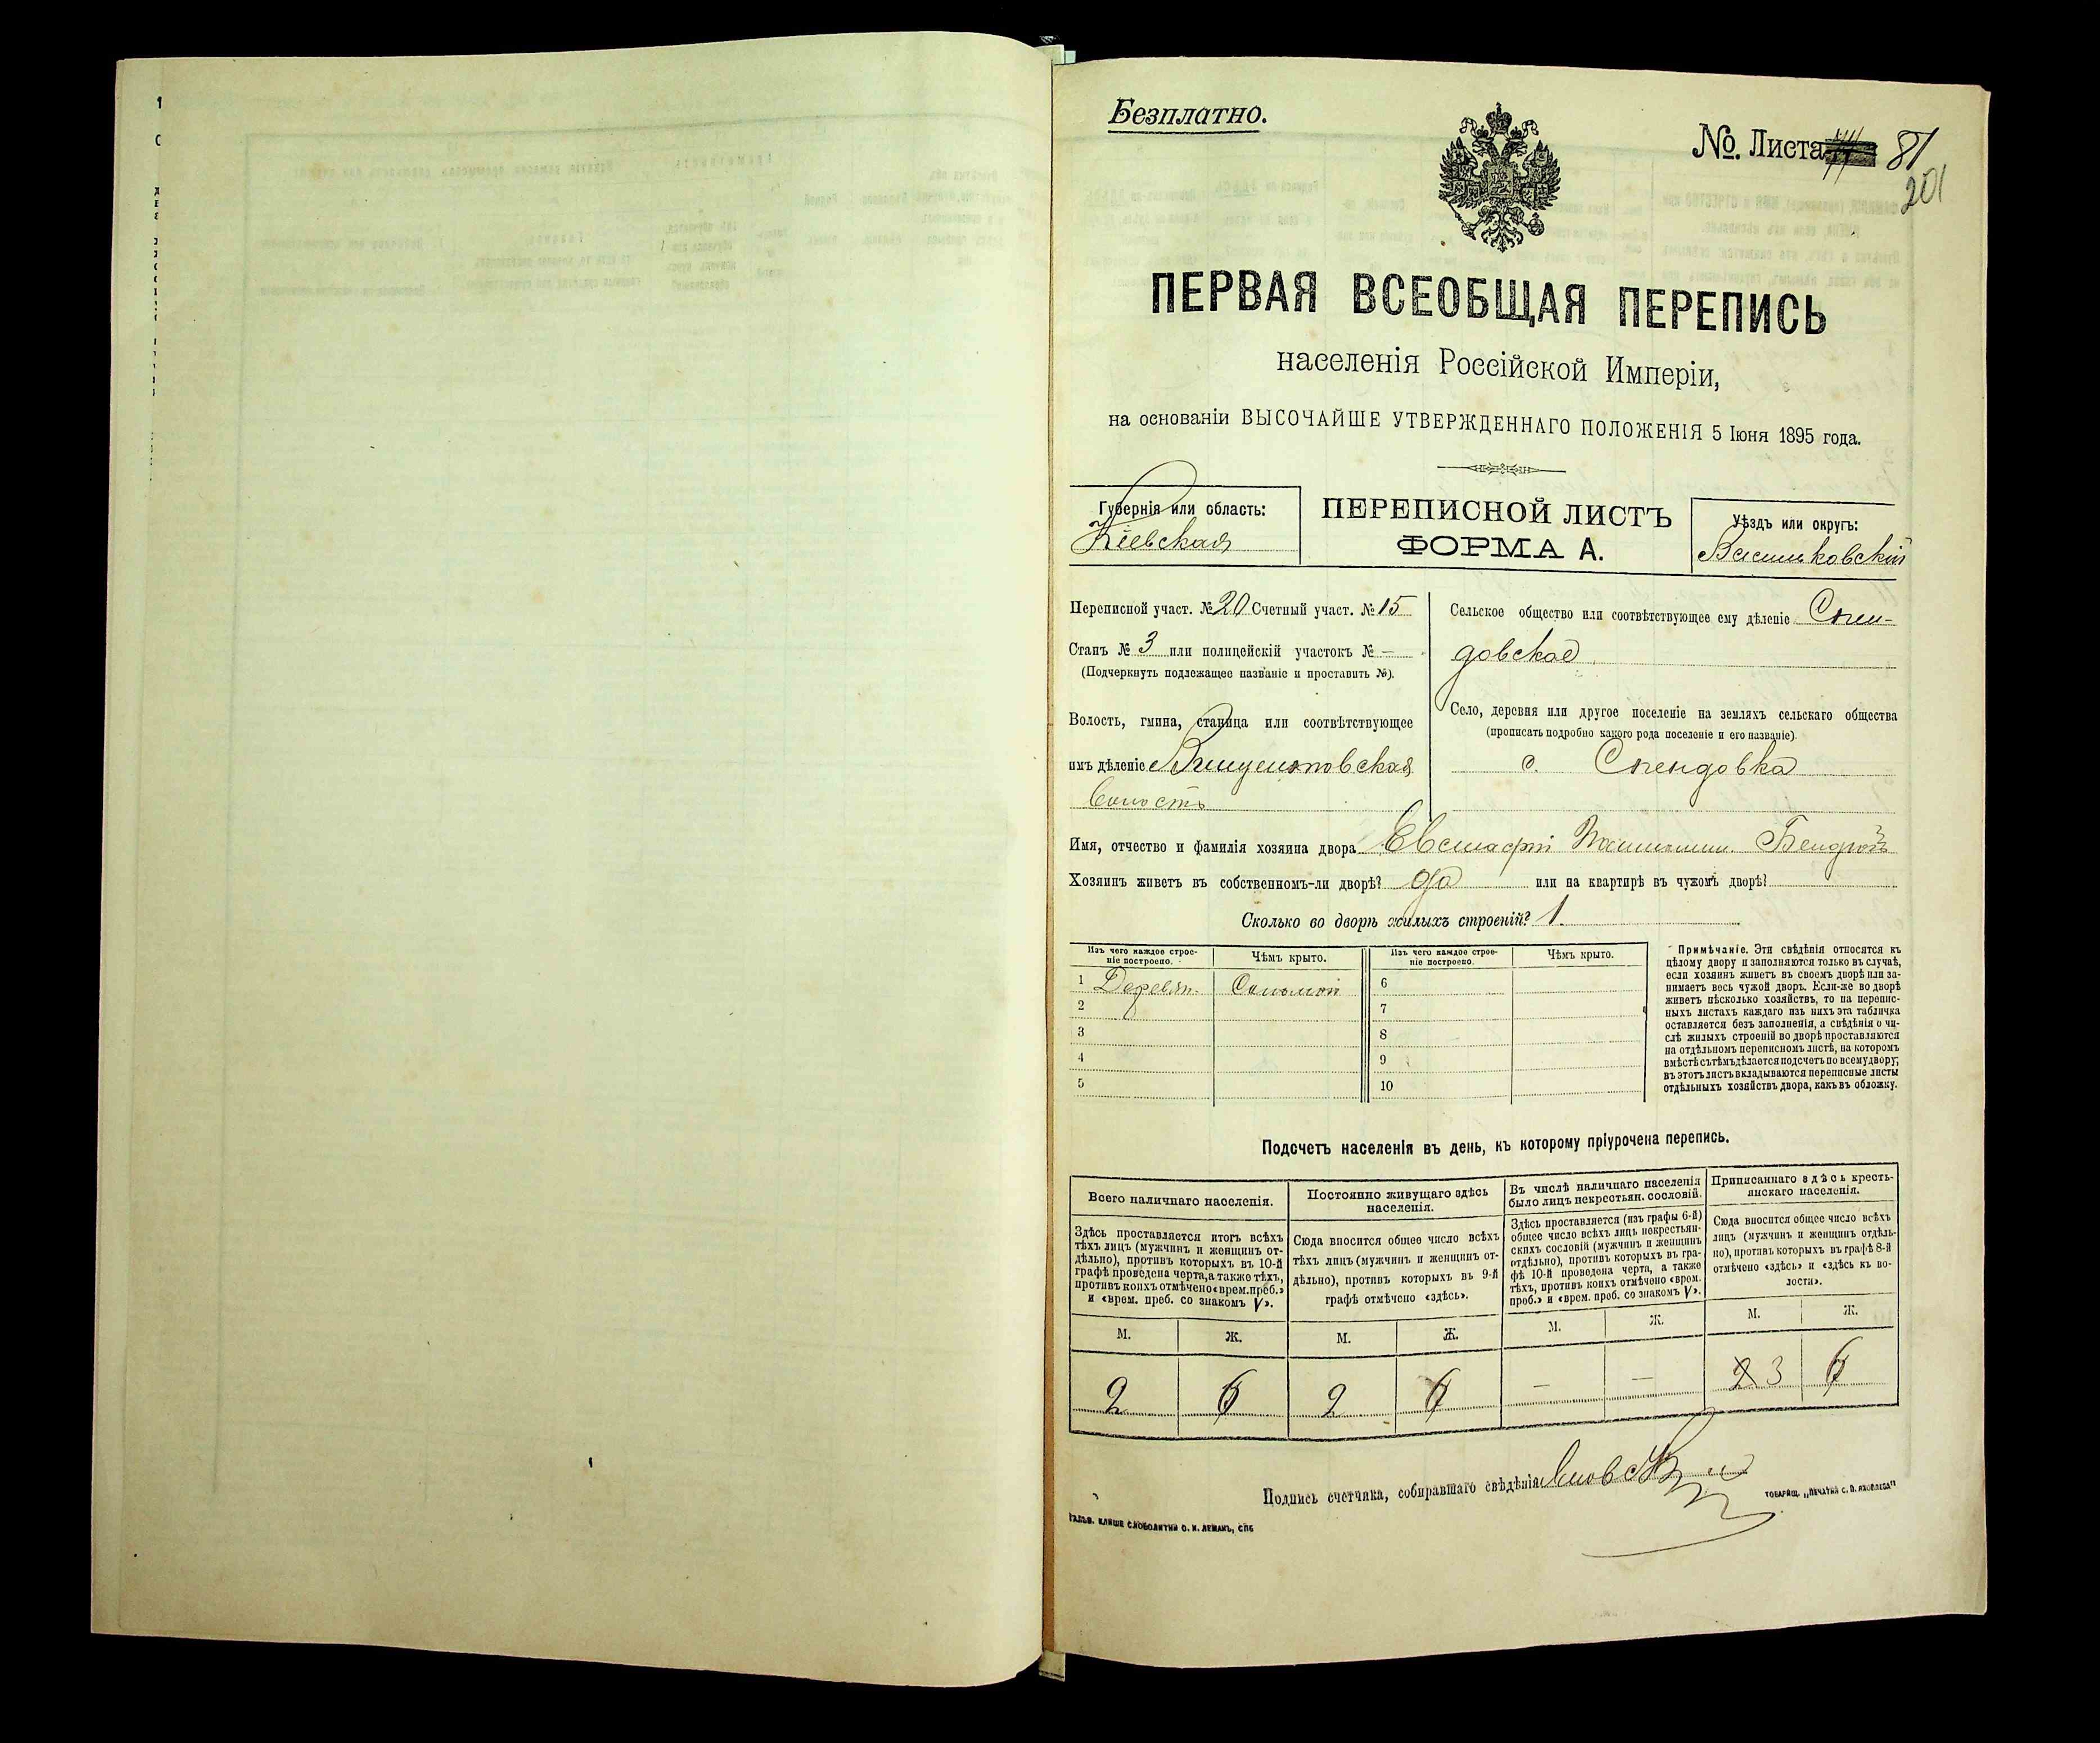 Безплатно.
№. Листа 81
201
ПЕРВАЯ ВСЕОБЩАЯ ПЕРЕПИСЬ
населенія Россійской Имперіи,
на основаніи ВЫСОЧАЙШЕ УТВЕРЖДЕННАГО ПОЛОЖЕНІЯ 5 Іюня 1895 года.
Губернія или область:
Кіевская
ПЕРЕПИСНОЙ ЛИСТЪ
ФОРМА А.
Уѣздъ или округъ:
Васильковскій
Переписной участ. № 20 Счетный участ. № 15
Станъ № 3 или полицейскій участокъ № —
(Подчеркнуть подлежащее названіе и проставить №).
Волость, гмина, станица или соотвѣтствующее
имъ дѣленіе
Волость
Сельское общество или соотвѣтствующее ему дѣленіе Спен-
довское
Село, деревня или другое поселеніе на земляхъ сельскаго общества
(прописать подробно какого рода поселеніе и его названіе).
с. Спендовка
Имя, отчество и фамилія хозяина двора
Хозяинъ живетъ въ собственномъ-ли дворѣ? да или на квартирѣ въ чужомъ дворѣ?
Сколько во дворѣ жилыхъ строеній? 1.
Изъ чего каждое строе-
ніе построено.
Чѣмъ крыто.
Изъ чего каждое строе-
ніе построено.
Чѣмъ крыто.
1 Деревян. Соломой 6
2 7
3 8
4 9
5 10
Примѣчаніе. Эти свѣдѣнія относятся къ
цѣлому двору и заполняются только въ случаѣ,
если хозяинъ живетъ въ своемъ дворѣ или за-
нимаетъ весь чужой дворъ. Если-же во дворѣ
живетъ нѣсколько хозяйствъ, то на перепис-
ныхъ листахъ каждаго изъ нихъ эта табличка
оставляется безъ заполненія, а свѣдѣнія о чи-
слѣ жилыхъ строеній во дворѣ проставляются
на отдѣльномъ переписномъ листѣ, на которомъ
вмѣстѣ съ тѣмъ дѣлается подсчетъ по всему двору;
въ этотъ листъ вкладываются переписные листы
отдѣльныхъ хозяйствъ двора, какъ въ обложку.
Подсчетъ населенія въ день, къ которому пріурочена перепись.
Всего наличнаго населенія.
Здѣсь проставляется итогъ всѣхъ
тѣхъ лицъ (мужчинъ и женщинъ от-
дѣльно), противъ которыхъ въ 10-й
графѣ проведена черта, а также тѣхъ,
противъ коихъ отмѣчено «врем. преб.»
и «врем. преб. со знакомъ V».
Постоянно живущаго здѣсь
населенія.
Сюда вносится общее число всѣхъ
тѣхъ лицъ (мужчинъ и женщинъ от-
дѣльно), противъ которыхъ въ 9-й
графѣ отмѣчено «здѣсь».
Въ числѣ наличнаго населенія
было лицъ некрестьян. сословій.
Здѣсь проставляется (изъ графы 6-й)
общее число всѣхъ лицъ некрестьян-
скихъ сословій (мужчинъ и женщинъ
отдѣльно), противъ которыхъ въ гра-
фѣ 10-й проведена черта, а также
тѣхъ, противъ коихъ отмѣчено «врем.
преб.» и «врем. преб. со знакомъ V».
Приписаннаго здѣсь кресть-
янскаго населенія.
Сюда вносится общее число всѣхъ
лицъ (мужчинъ и женщинъ отдѣль-
но), противъ которыхъ въ графѣ 8-й
отмѣчено «здѣсь» и «здѣсь къ во-
лости».
М. Ж. М. Ж. М. Ж. М. Ж.
2 6 2 6 — — 2 3 6
Подпись счетчика, собиравшаго свѣдѣнія
ТОВАРИЩ. „ПЕЧАТНЯ С. П. ЯКОВЛЕВА"
ГАЛЬВ. КЛИШЕ СЛОВОЛИТНИ О. И. ЛЕМАНЪ, СПБ